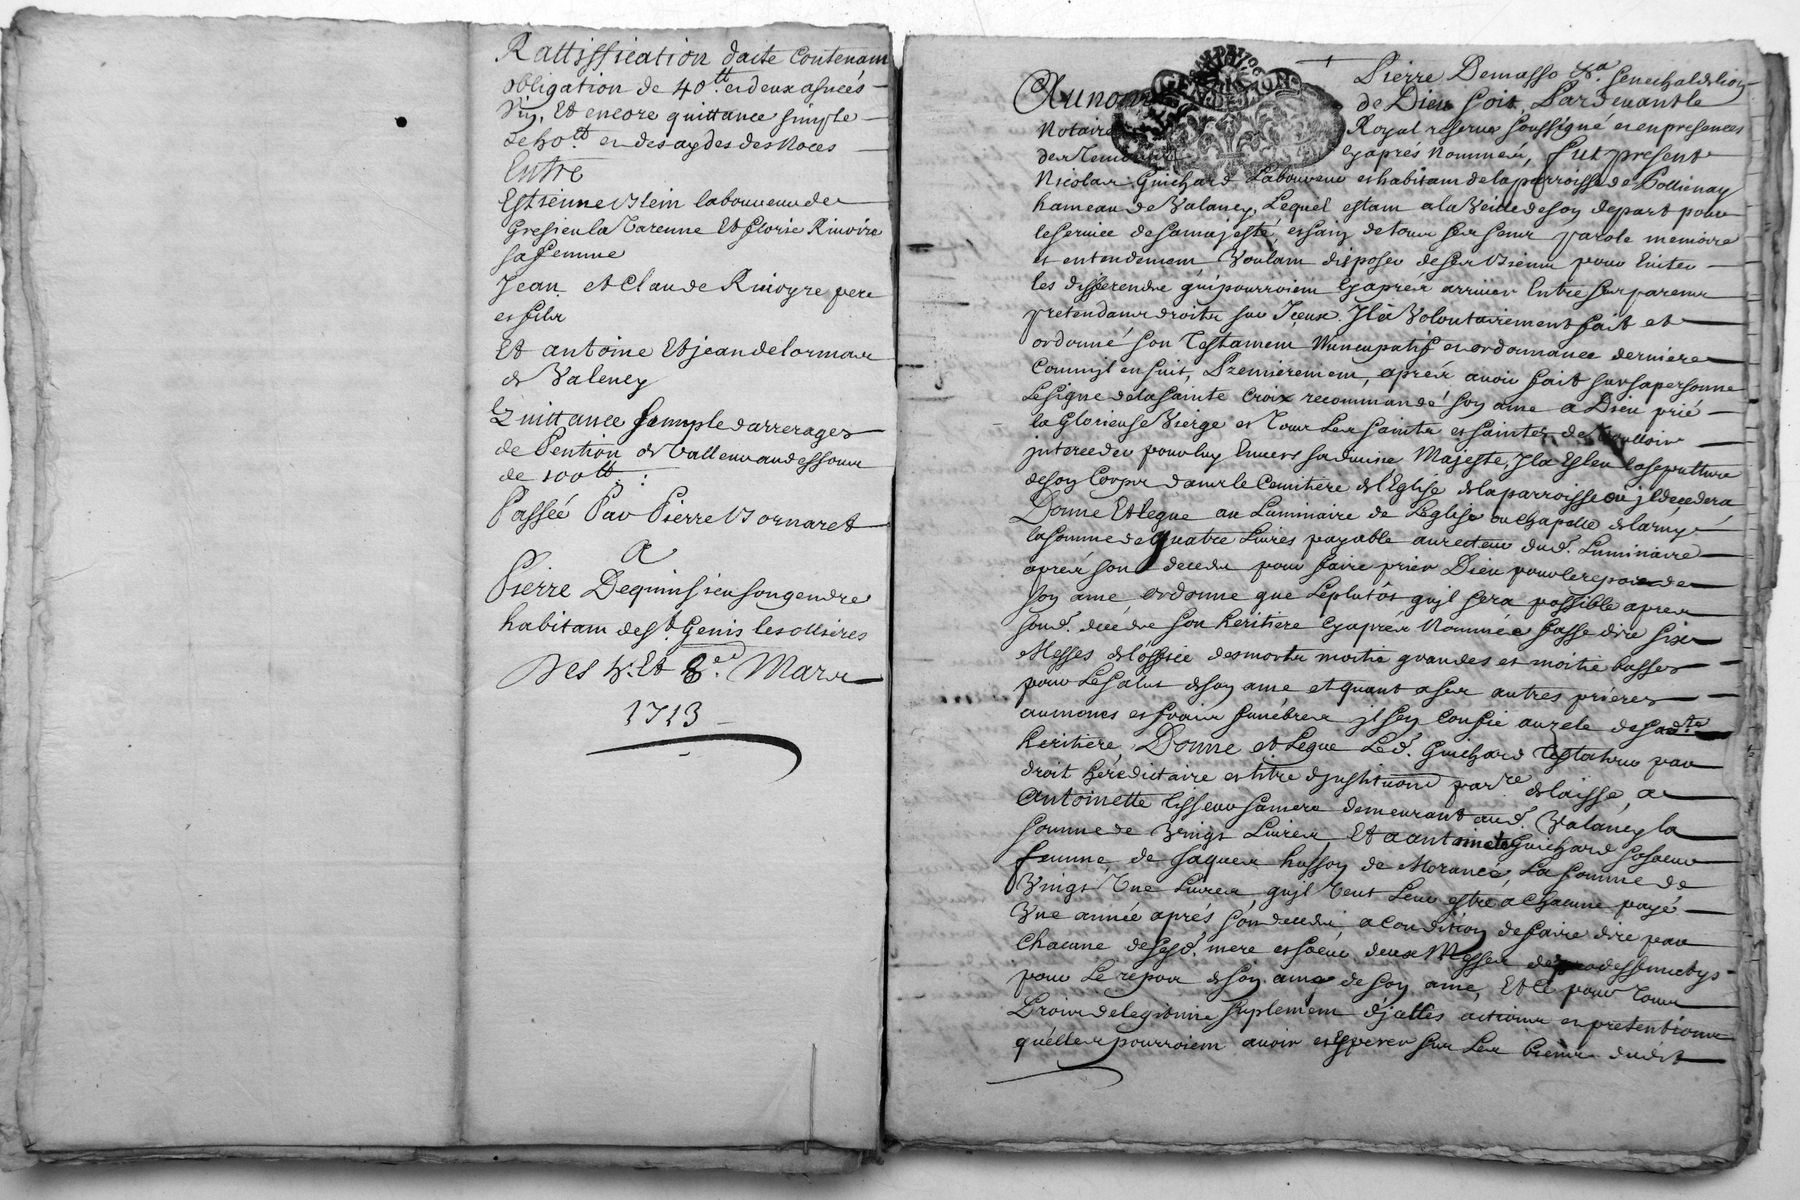 Rattiffication dacte Contenam
obligation de 40.tt et deux asnées
Vin, Et encore quittance simple
de 60.tt et des aydes des Noces
Entre
Estienne Blein laboureur de
Gresieu la Varenne Et florie Rivoire
sa femme
Jean et Claude Rivoyre pere
et fils
Et antoine Et jean delormas
de Valency
Quittance simple darrerages
de Pention de Valleur audessous
de 100tt :
Passée Par Pierre Bornaret
A
Pierre Dequinsieu son gendre
habitam de St Genis les ollieres
Des 4. Et 8.e Mars
1713
Pierre Demasso &a. Senechal de lion
Au nom de Dieu soit, Pardevant le
Notaire Royal reservé soussigné et en presences
des Temoins cyaprés Nommés, fut present
Nicolas Guichard Laboureur et habitam de la parroisse de Pollionay
hameau de Valancy, Lequel estam a la Veille de son depart pour
le service de sa majesté, et sain de tous ses sens parole memoire
et entendement Voulam disposer de ses biens pour Eviter
les differends qui pourroien Cyaprés arriver Entre ses parens
pretendans droits sur Iceux. Il a Volontairement fait et
ordonné son Testament Nuncupatif et ordonnance derniere
Comm'il en suit, Premierement, aprés avoir fait sur sa personne
Le signe de la sainte Croix recommandé son ame a Dieu prié
la Glorieuse Vierge et Tous Les saints et saintes de Vouloir
interceder pour luy Envers sa divine Majesté, Il a Esleu la sepulture
de son Corps dans le Cemitiere de l'Eglise de la parroisse ou il decedera,
Donne Et legue au Luminaire de L'eglise ou chapelle de larny
la somme de quatre Livres payable au recteur dud. Luminaire
aprés son decedz pour faire prier Dieu pour le repos de
son ame ordonne que Leplutôs qu'il sera possible apres
sond. décéds son heritiere Cyaprés Nommée fasse dire six
Messes de l'office des morts moitié grandes et moitié basses
pour Le salut de son ame et quant a ses autres prieres
aumones et frais funebres il s'en Confie au zele de sad.te
heritiere, Donne et Legue Led. Guichard Testateur par
droit héréditaire et titre d'institution par.re delaisse, a
Antoinette Tisseur sa mere demeurant aud. Valancy la
somme de Vingt Livres Et a antoinette Guichard sa soeur
femme de Jaques husson de Morancé, La somme de
Vingt Une Livres qu'il Veut Leur estre a Chacune payé
Une année aprés son decedz, a Condition de faire dire par
Chacune de sesd. mere et soeur deux Messes de
pour Le repos de son ame de son ame, Et ce pour Tous
Droits de legitime suplément d'icelles actions et pretentions
qu'elles pourroien avoir et esperer sur Les biens dudit